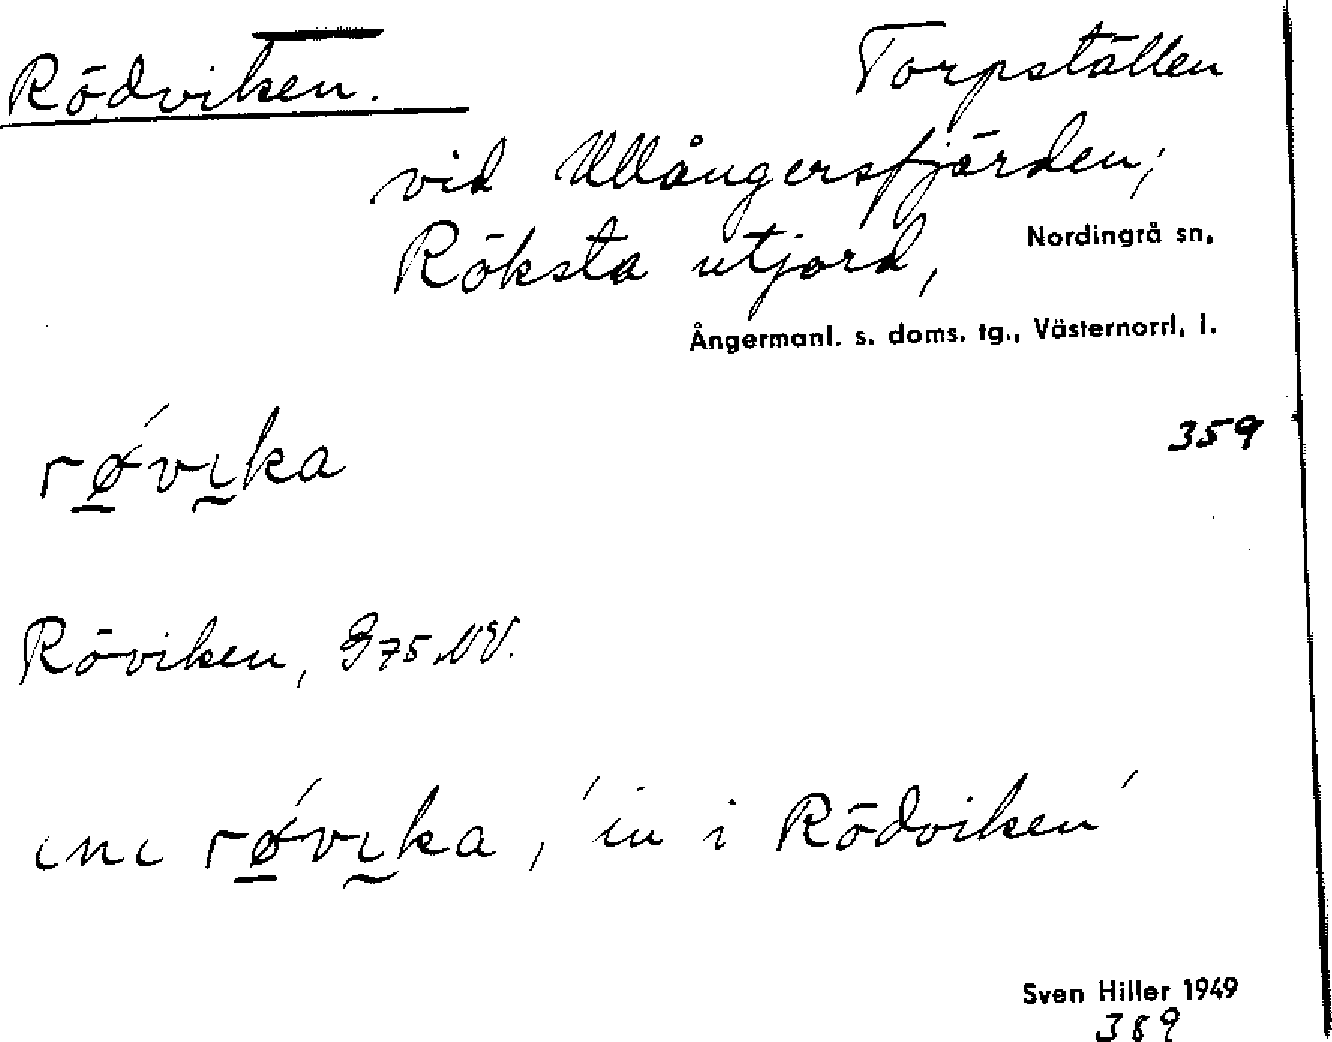 Rödviken. Torpställen
vid Ullångersfjärden;
Röksta utjord, Nordingrå sn,
Ångermanl. s. doms. tg., Västernorrl. l.
røvıka 359
Röviken, G75NV.
ını røvıka, 'in i Rödviken'
Sven Hiller 1949
359